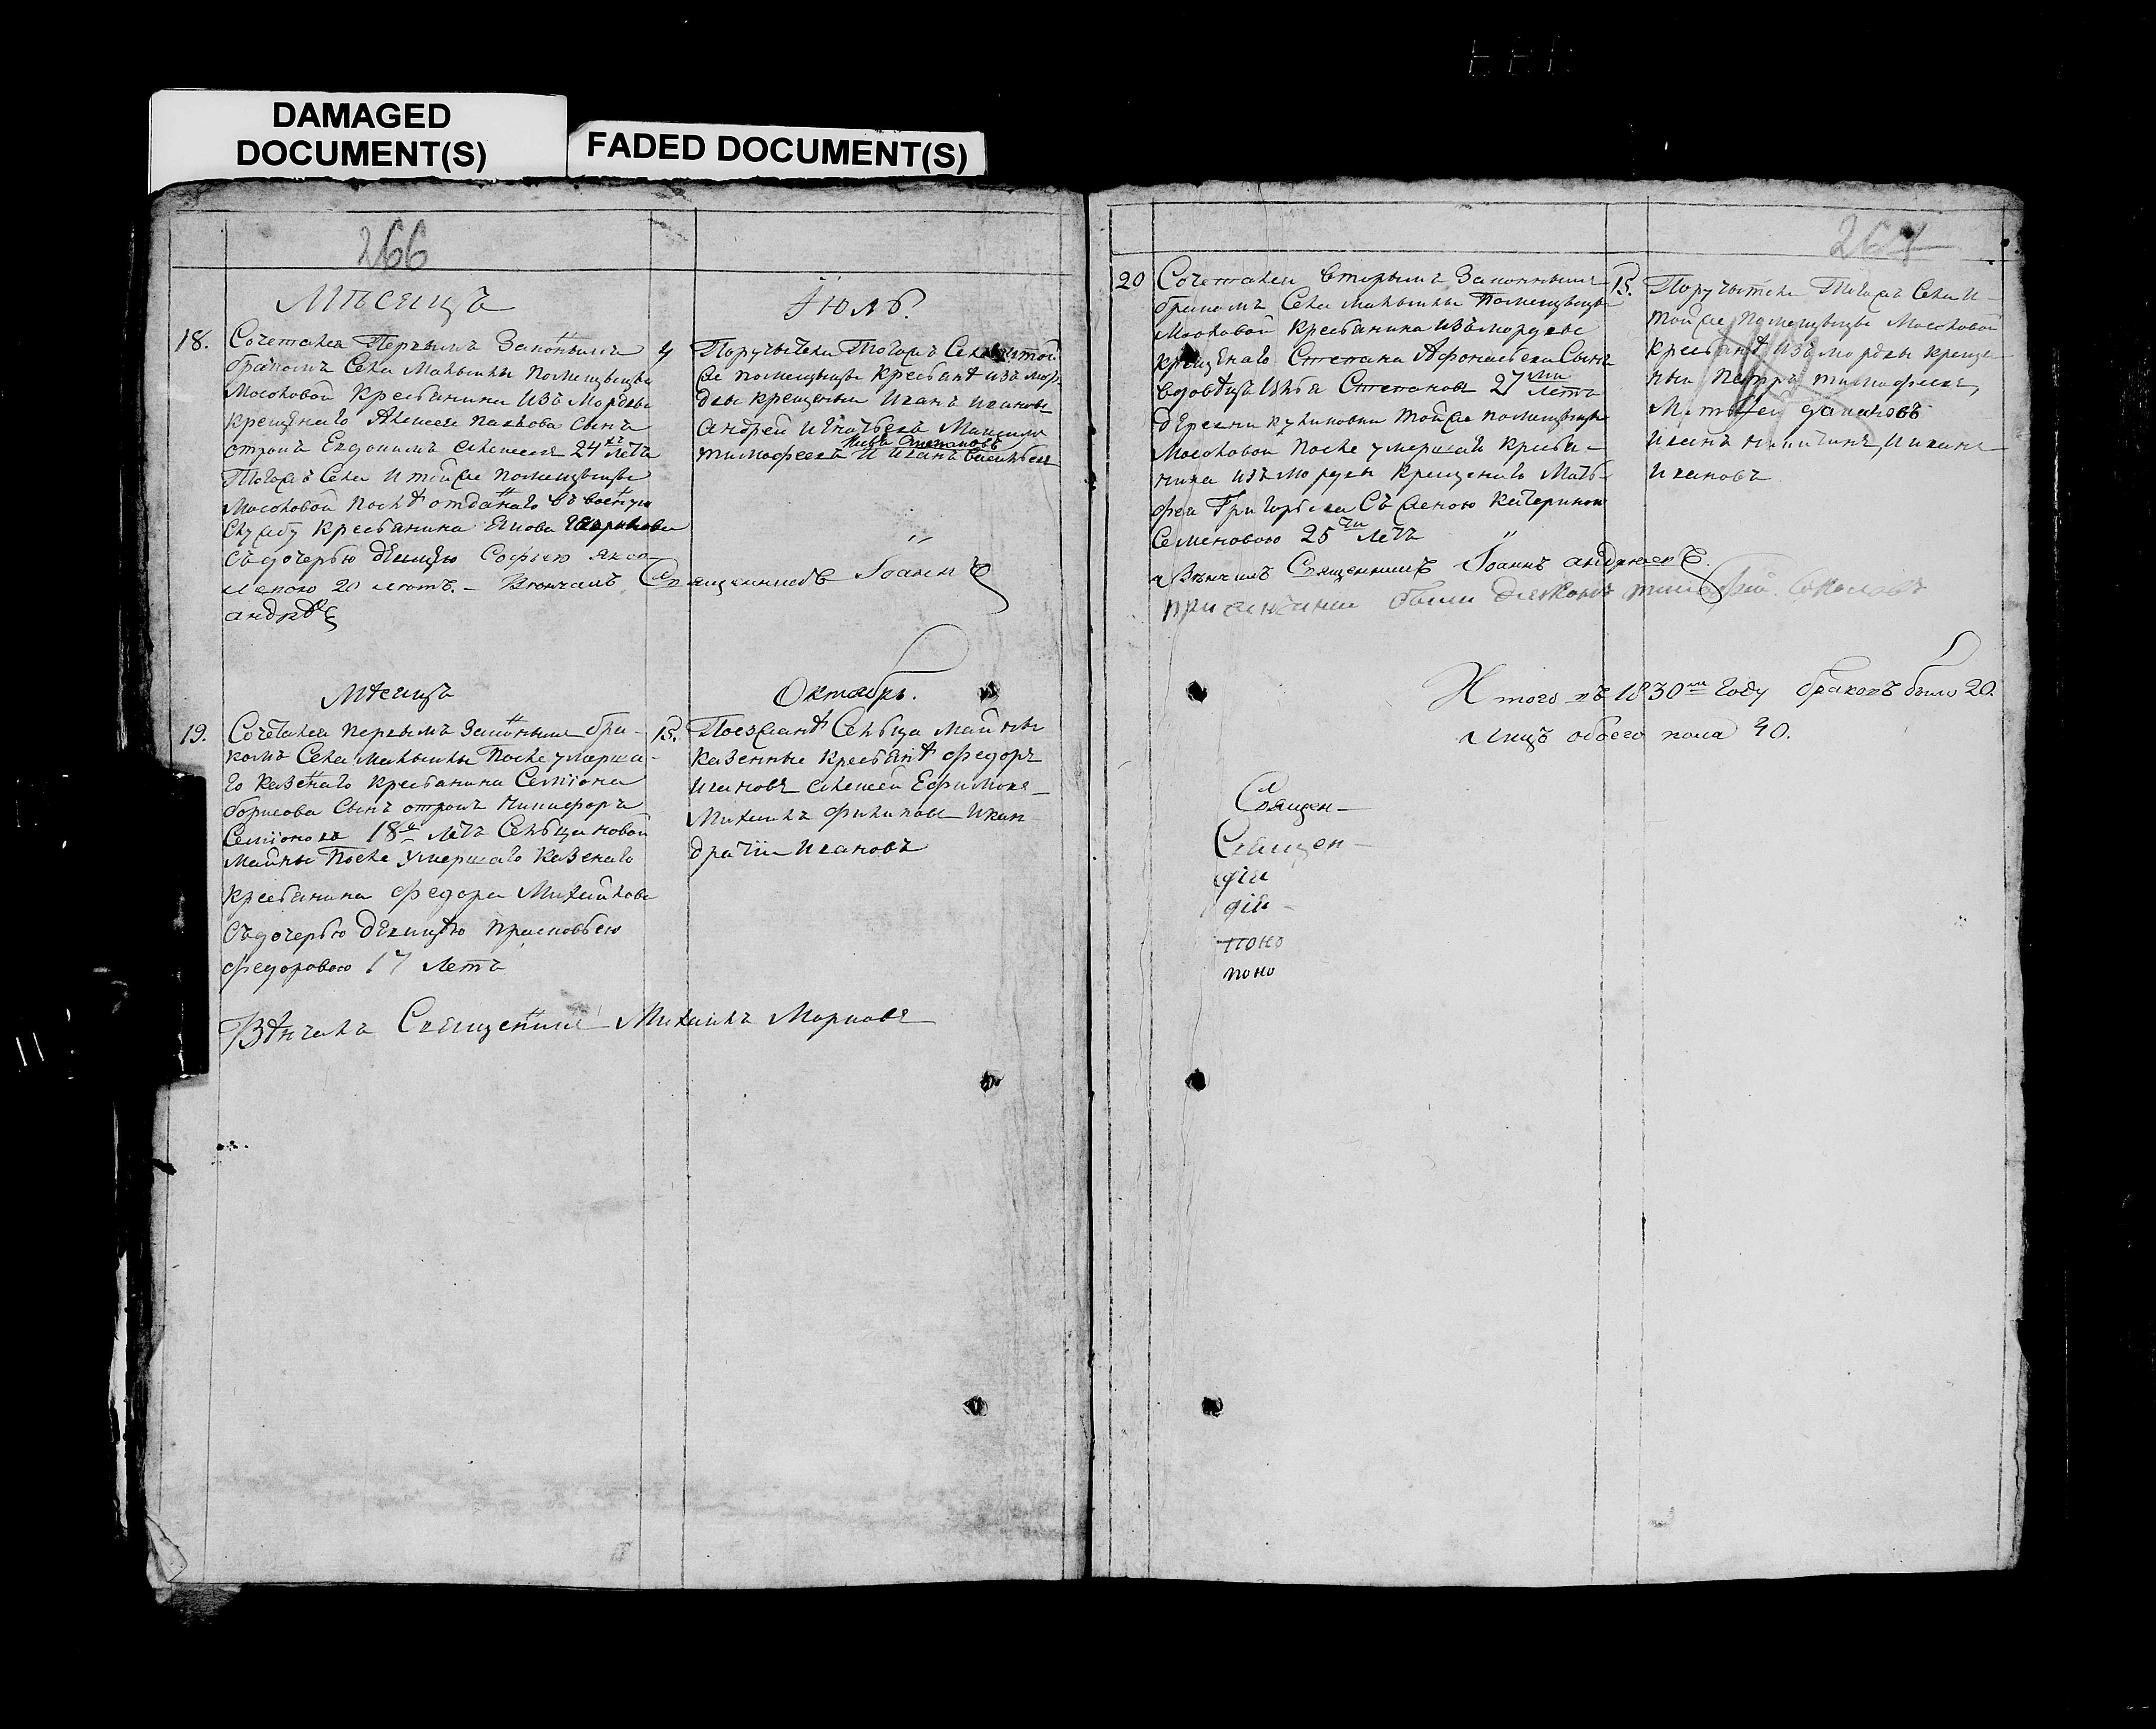 DAMAGED
DOCUMENT(S)
FADED DOCUMENT(S)
266
Мѣсецъ Июль
18. Сочетался Первымъ Законнымъ
бракомъ Села помещицы
Мосоловой Крестьянина Изъ Мордвы
крещенаго Алексея сынъ
отрокъ Алексеевъ 24хъ летъ
Тогожъ Села И тойже помещицы
Мосоловой послѣ отданаго въ военную
Службу крестьянина Якова
Съдочерью девицею Софьею яков-
левою 20 летъ. – Венчалъ Священникъ Иоаннъ
андрѣевъ
4 Поручители Тогожъ Села итой
же помещицы крестьянѣ изъ мор
двы крещеные Иванъ Ивановъ
Андрей Игнатьевъ Максимъ
Степановъ
тимофеевъ И Иванъ Васильевъ
Мѣсецъ Октябрь.
19. Сочетался первымъ Законнымъ бра-
комъ Села После умерша-
го казенаго крестьянина Семиона
борисова Сынъ отрокъ Никифоръ
Семионовъ 18и летъ Сельца новой
Майны После умершаго казенаго
крестьянина федора Михайлова
Съдочерью девицею прасковьею
федоровою 17 летъ
15. Поезжанѣ Сельца Майны
казенные крестьянѣ федоръ
Ивановъ алексей Ефимовъ
Михаилъ филиповъ Икон
дратий Ивановъ
Вѣнчалъ Священникъ Михаилъ
20 Сочетался вторымъ Законнымъ
бракомъ Села помещицы
Мосоловой Крестьянина Изъмордвы
крещенаго Степана Афонасьева Сынъ
вдовецъ Илья Степановъ 27ми летъ
деревни куликовки тойже помещицы
Мосоловой После умершаго крестья-
нина изъ мордвы крещенаго Матъ-
фея Григорьева Съ женою Катериною
Семеновою 25ти летъ
Венчалъ Священникъ Иоаннъ андреевъ.
при венчании были дьяконъ
15. Поручители Тогожъ Села И
тойже помещицы Мосоловой
крестьянѣ изъ мордвы креще
ные Петръ тимофеевъ,
Матвей
Иванъ никитинъ, Иванъ
Ивановъ
Итого въ 1830мъ году браковъ было 20.
лицъ обоего пола 40.
Священ-
Священ-
поно
поно